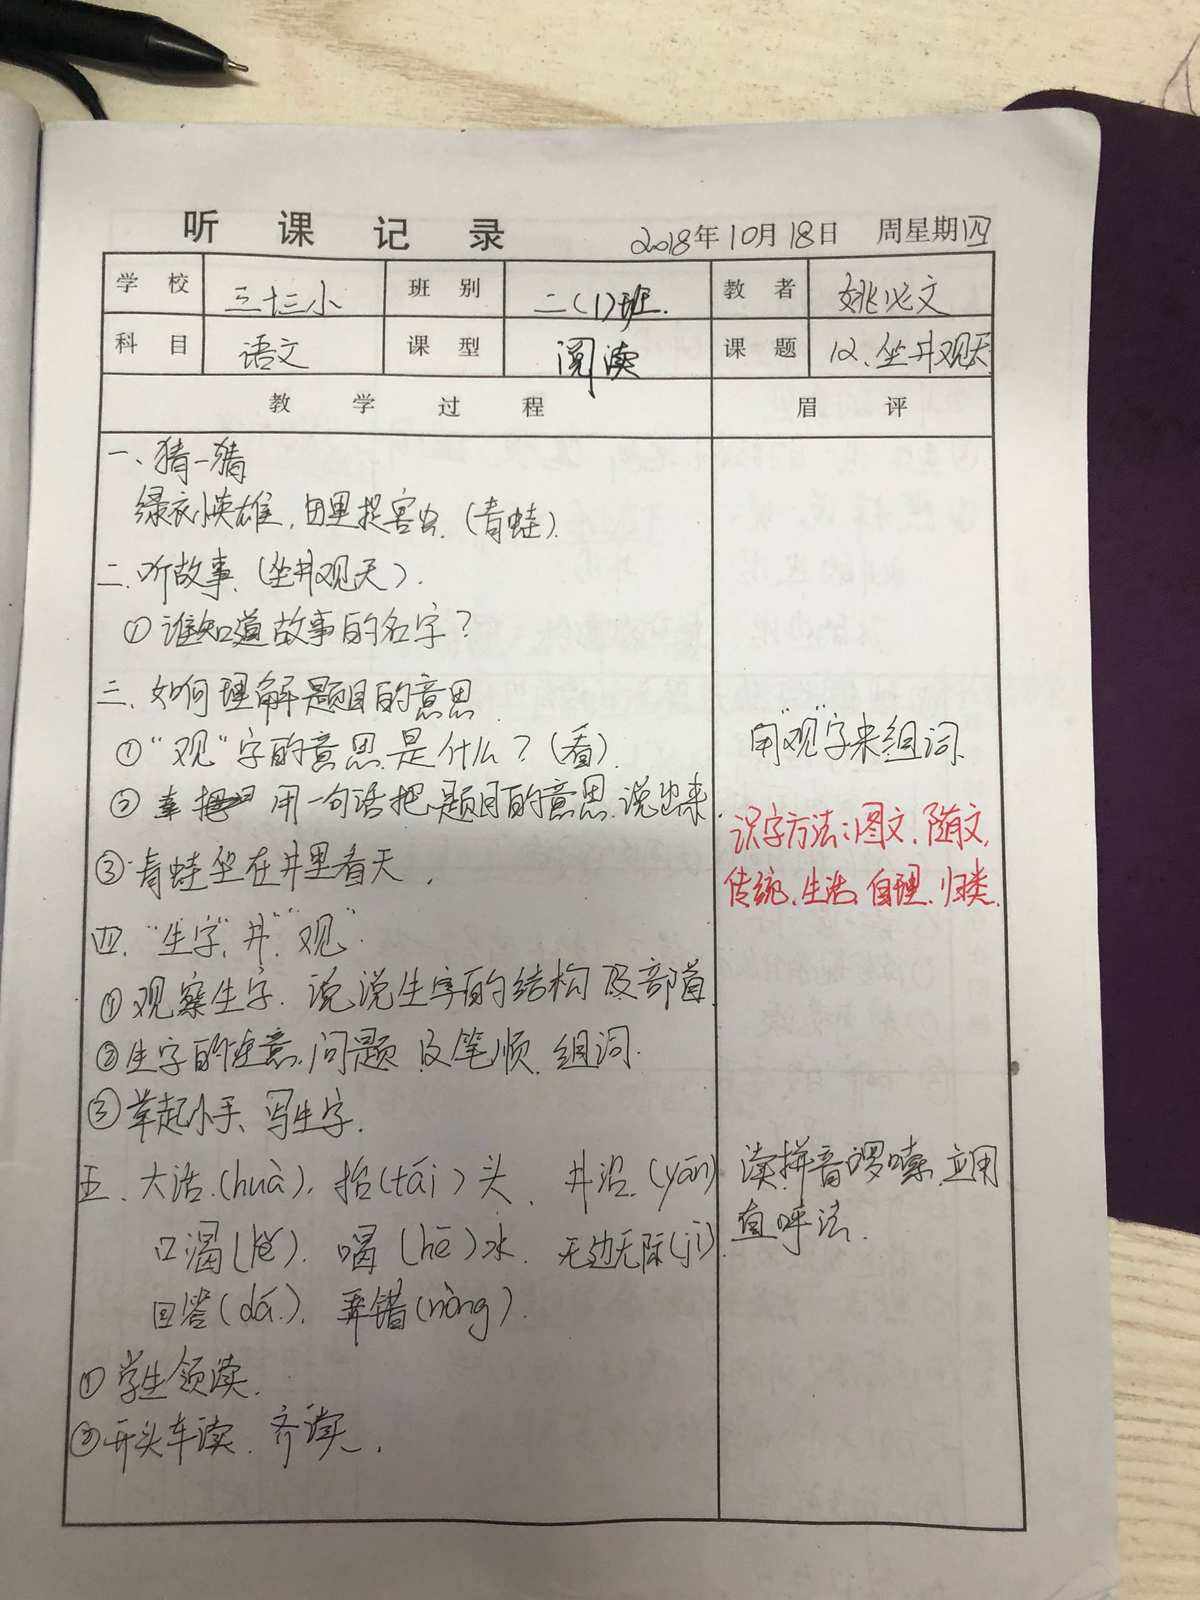 听课记录 2018年10月18日 周星期四
学校 三十三小 班别 二(1)班. 教者
科目 语文 课型 阅读 课题 12、坐井观天
教学过程 眉评
一、猜一猜
绿衣小英雄，田里捉害虫.(青蛙).
二.听故事.(坐井观天).
①谁知道故事的名字？
三、如何理解题目的意思.
①“观”字的意思是什么？(看).
用“观”字来组词.
② 用一句话把题目的意思说出来.
识字方法：图文、随文,
③青蛙坐在井里看天.
传统、生活、自理、归类.
四.“生字”“井”“观”
①观察生字.说说生字的结构及部首.
②生字的注意问题及笔顺.组词.
③举起小手、写生字.
五.大话.(huà).抬(tái)头、井沿.(yán)
读拼音啰嗦.应用
口渴(kě).喝(hē)水.无边无际(jì).
直呼法.
回答(dá.).弄错(nòng).
①学生领读.
②开头车读.齐读.